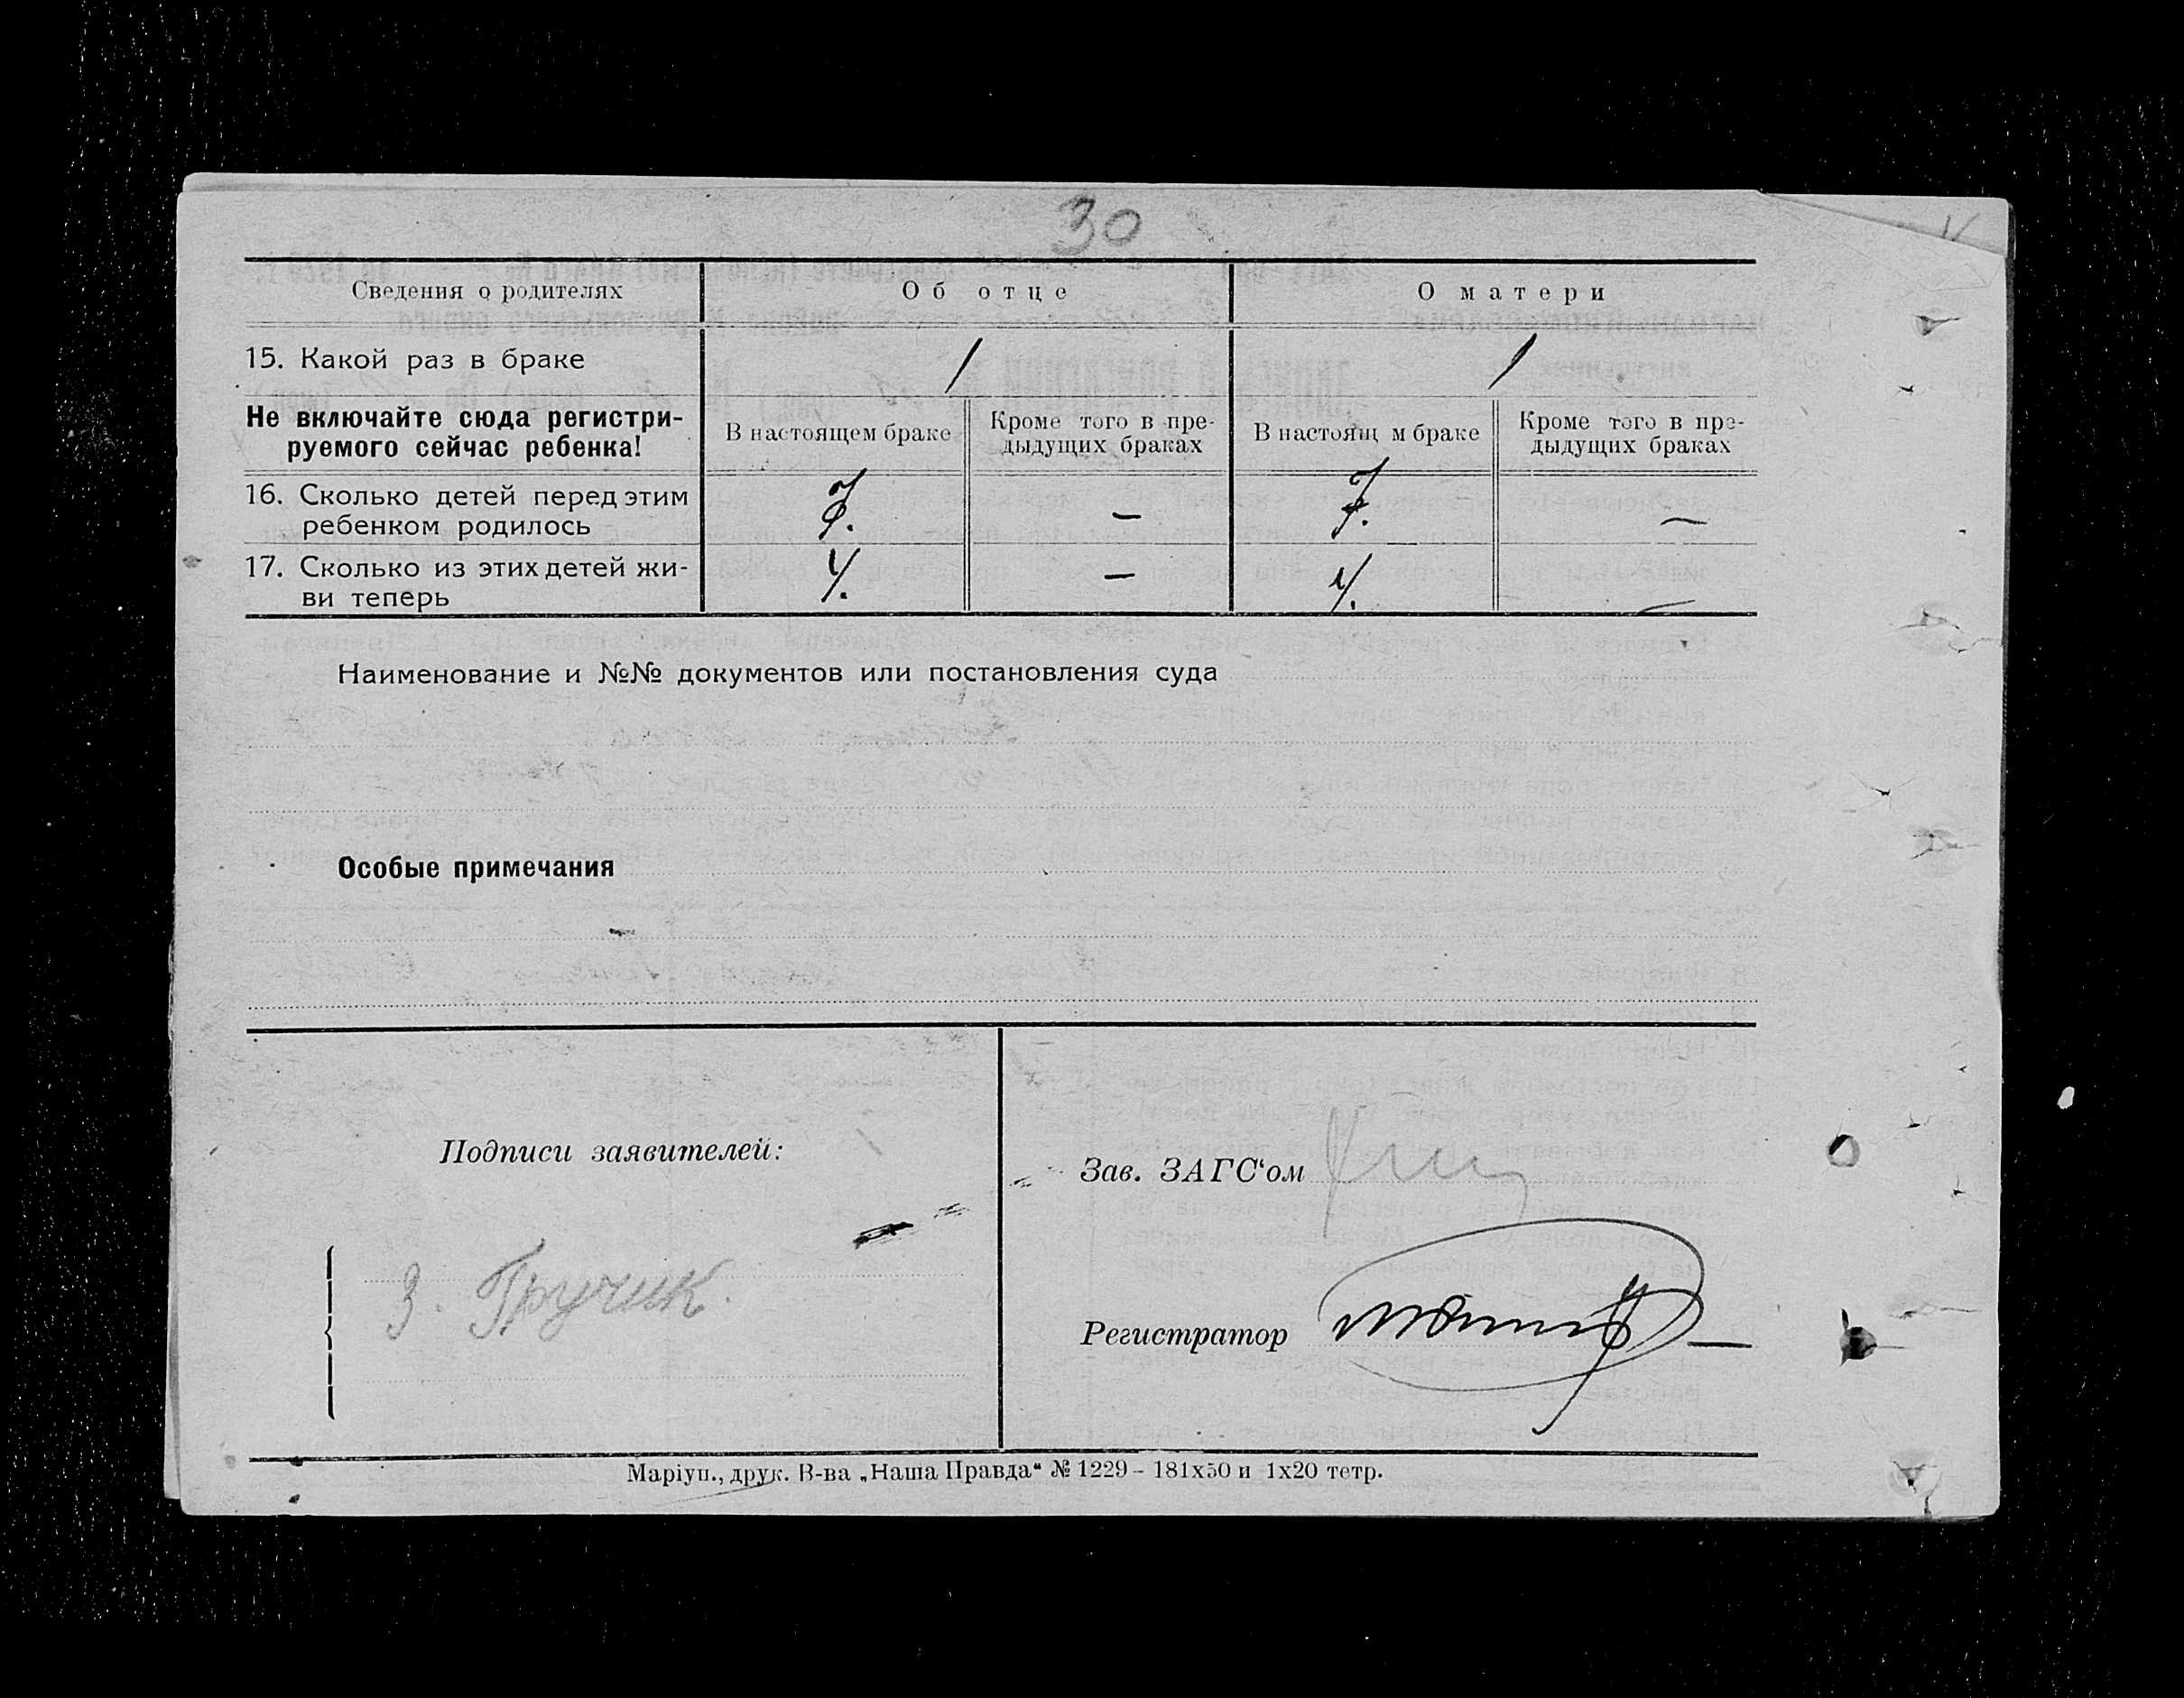 30
Сведения о родителях Об отце О матери
15. Какой раз в браке / /
Не включайте сюда регистри-
руемого сейчас ребенка!
В настоящем браке
Кроме того в пре-
дыдущих браках
В настоящ м браке
Кроме того в пре-
дыдущих браках
16. Сколько детей перед этим
ребенком родилось
7. — 7. —
17. Сколько из этих детей жи-
ви теперь
4. — 4. —
Наименование и №№ документов или постановления суда
Особые примечания
Подписи заявителей:
З. Гручик.
Зав. ЗАГС‘ом
Регистратор
Маріуп., друк. В-ва „Наша Правда“ № 1229 – 181х50 и 1х20 тетр.